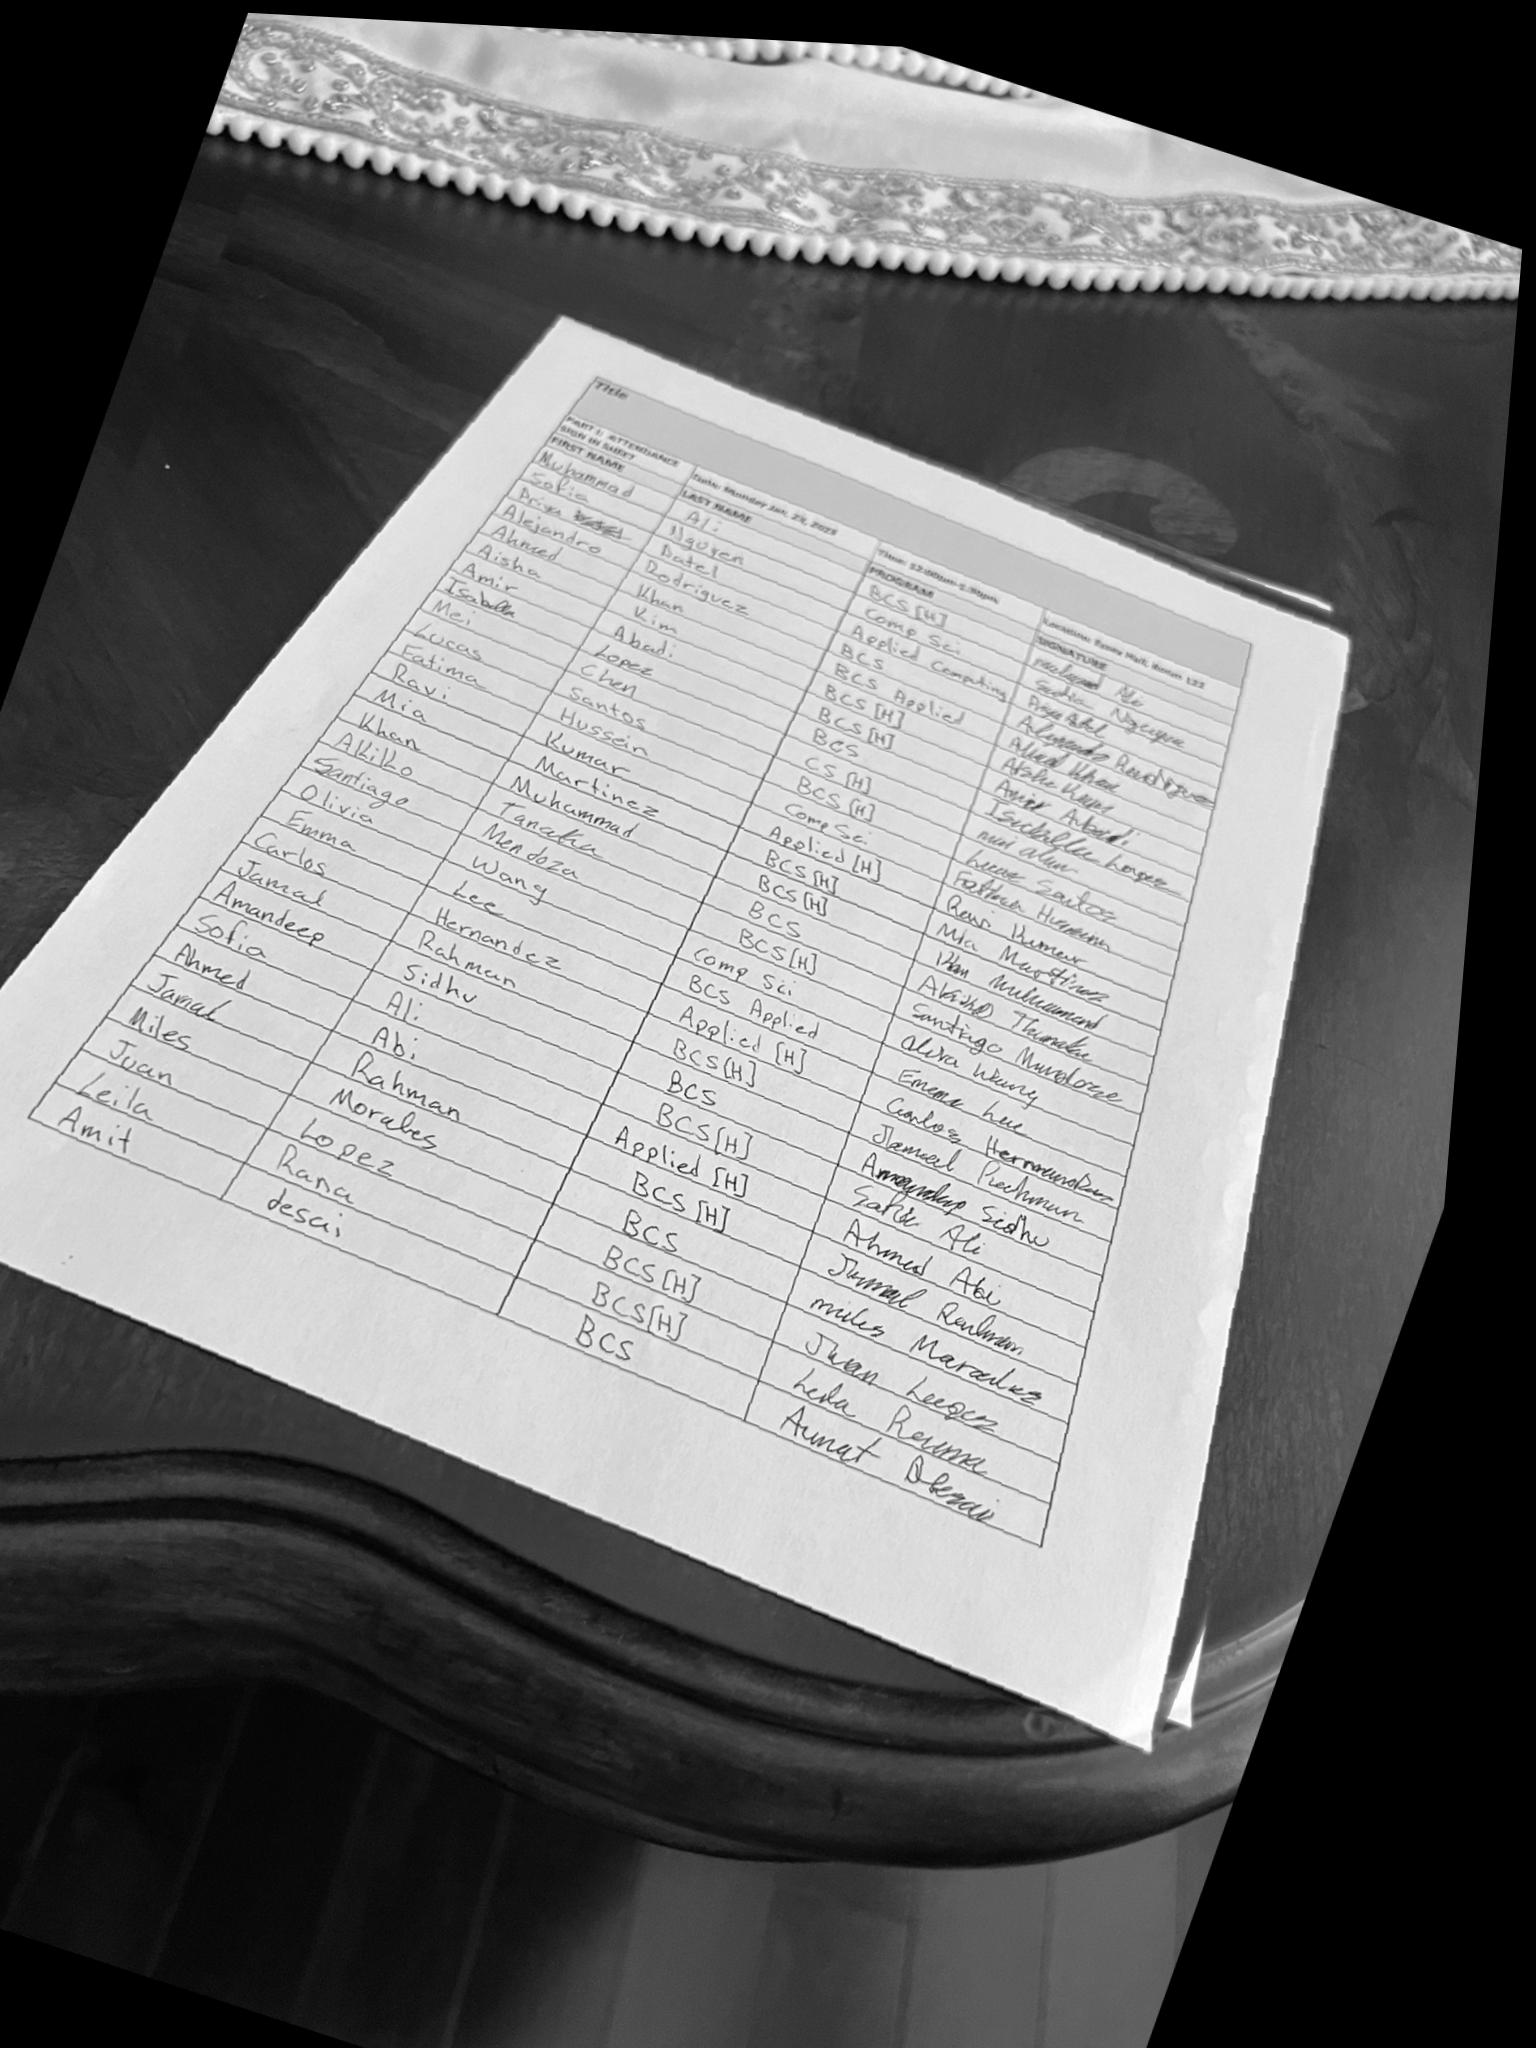 Title
PART I: ATTENDANCE SIGN IN SHEET Date: Monday Jan. 23, 2023 Time: 12:00pm-1:30pm Location: Essex Hall, Room 122
FIRST NAME LAST NAME PROGRAM SIGNATURE
Muhammad Ali BCS [H]
Sofia Nguyen Comp Sci Sofia Nguyen
Priya Patel Applied Computing Priya Patel
Alejandro Rodriguez BCS Alejandro Rodriguez
Ahmed Khan BCS Applied Ahmed Khan
Aisha Kim BCS [H] Aisha
Amir Abadi BCS [H] Amir Abadi
Isabella Lopez BCS Isabella Lopez
Mei Chen CS [H]
Lucas Santos BCS [H] Lucas Santos
Fatima Hussein Comp Sci Fatima Hussein
Ravi Kumar Applied [H] Ravi Kumar
Mia Martinez BCS [H] Mia Martinez
Khan Muhammad BCS [H] Khan Muhammad
Akiko Tanaka BCS Akiko Tanaka
Santiago Mendoza BCS [H] Santiago Mendoza
Olivia Wang Comp Sci Olivia Wang
Emma Lee BCS Applied Emma Lee
Carlos Hernandez Applied [H] Carlos Hernandez
Jamal Rahman BCS [H] Jamal Rahman
Amandeep Sidhu BCS Amandeep Sidhu
Sofia Ali BCS [H] Sofia Ali
Ahmed Abi Applied [H] Ahmed Abi
Jamal Rahman BCS [H] Jamal Rahman
Miles Morales BCS Miles Morales
Juan Lopez BCS [H] Juan Lopez
Leila Rana BCS [H] Leila
Amit desai BCS Desai